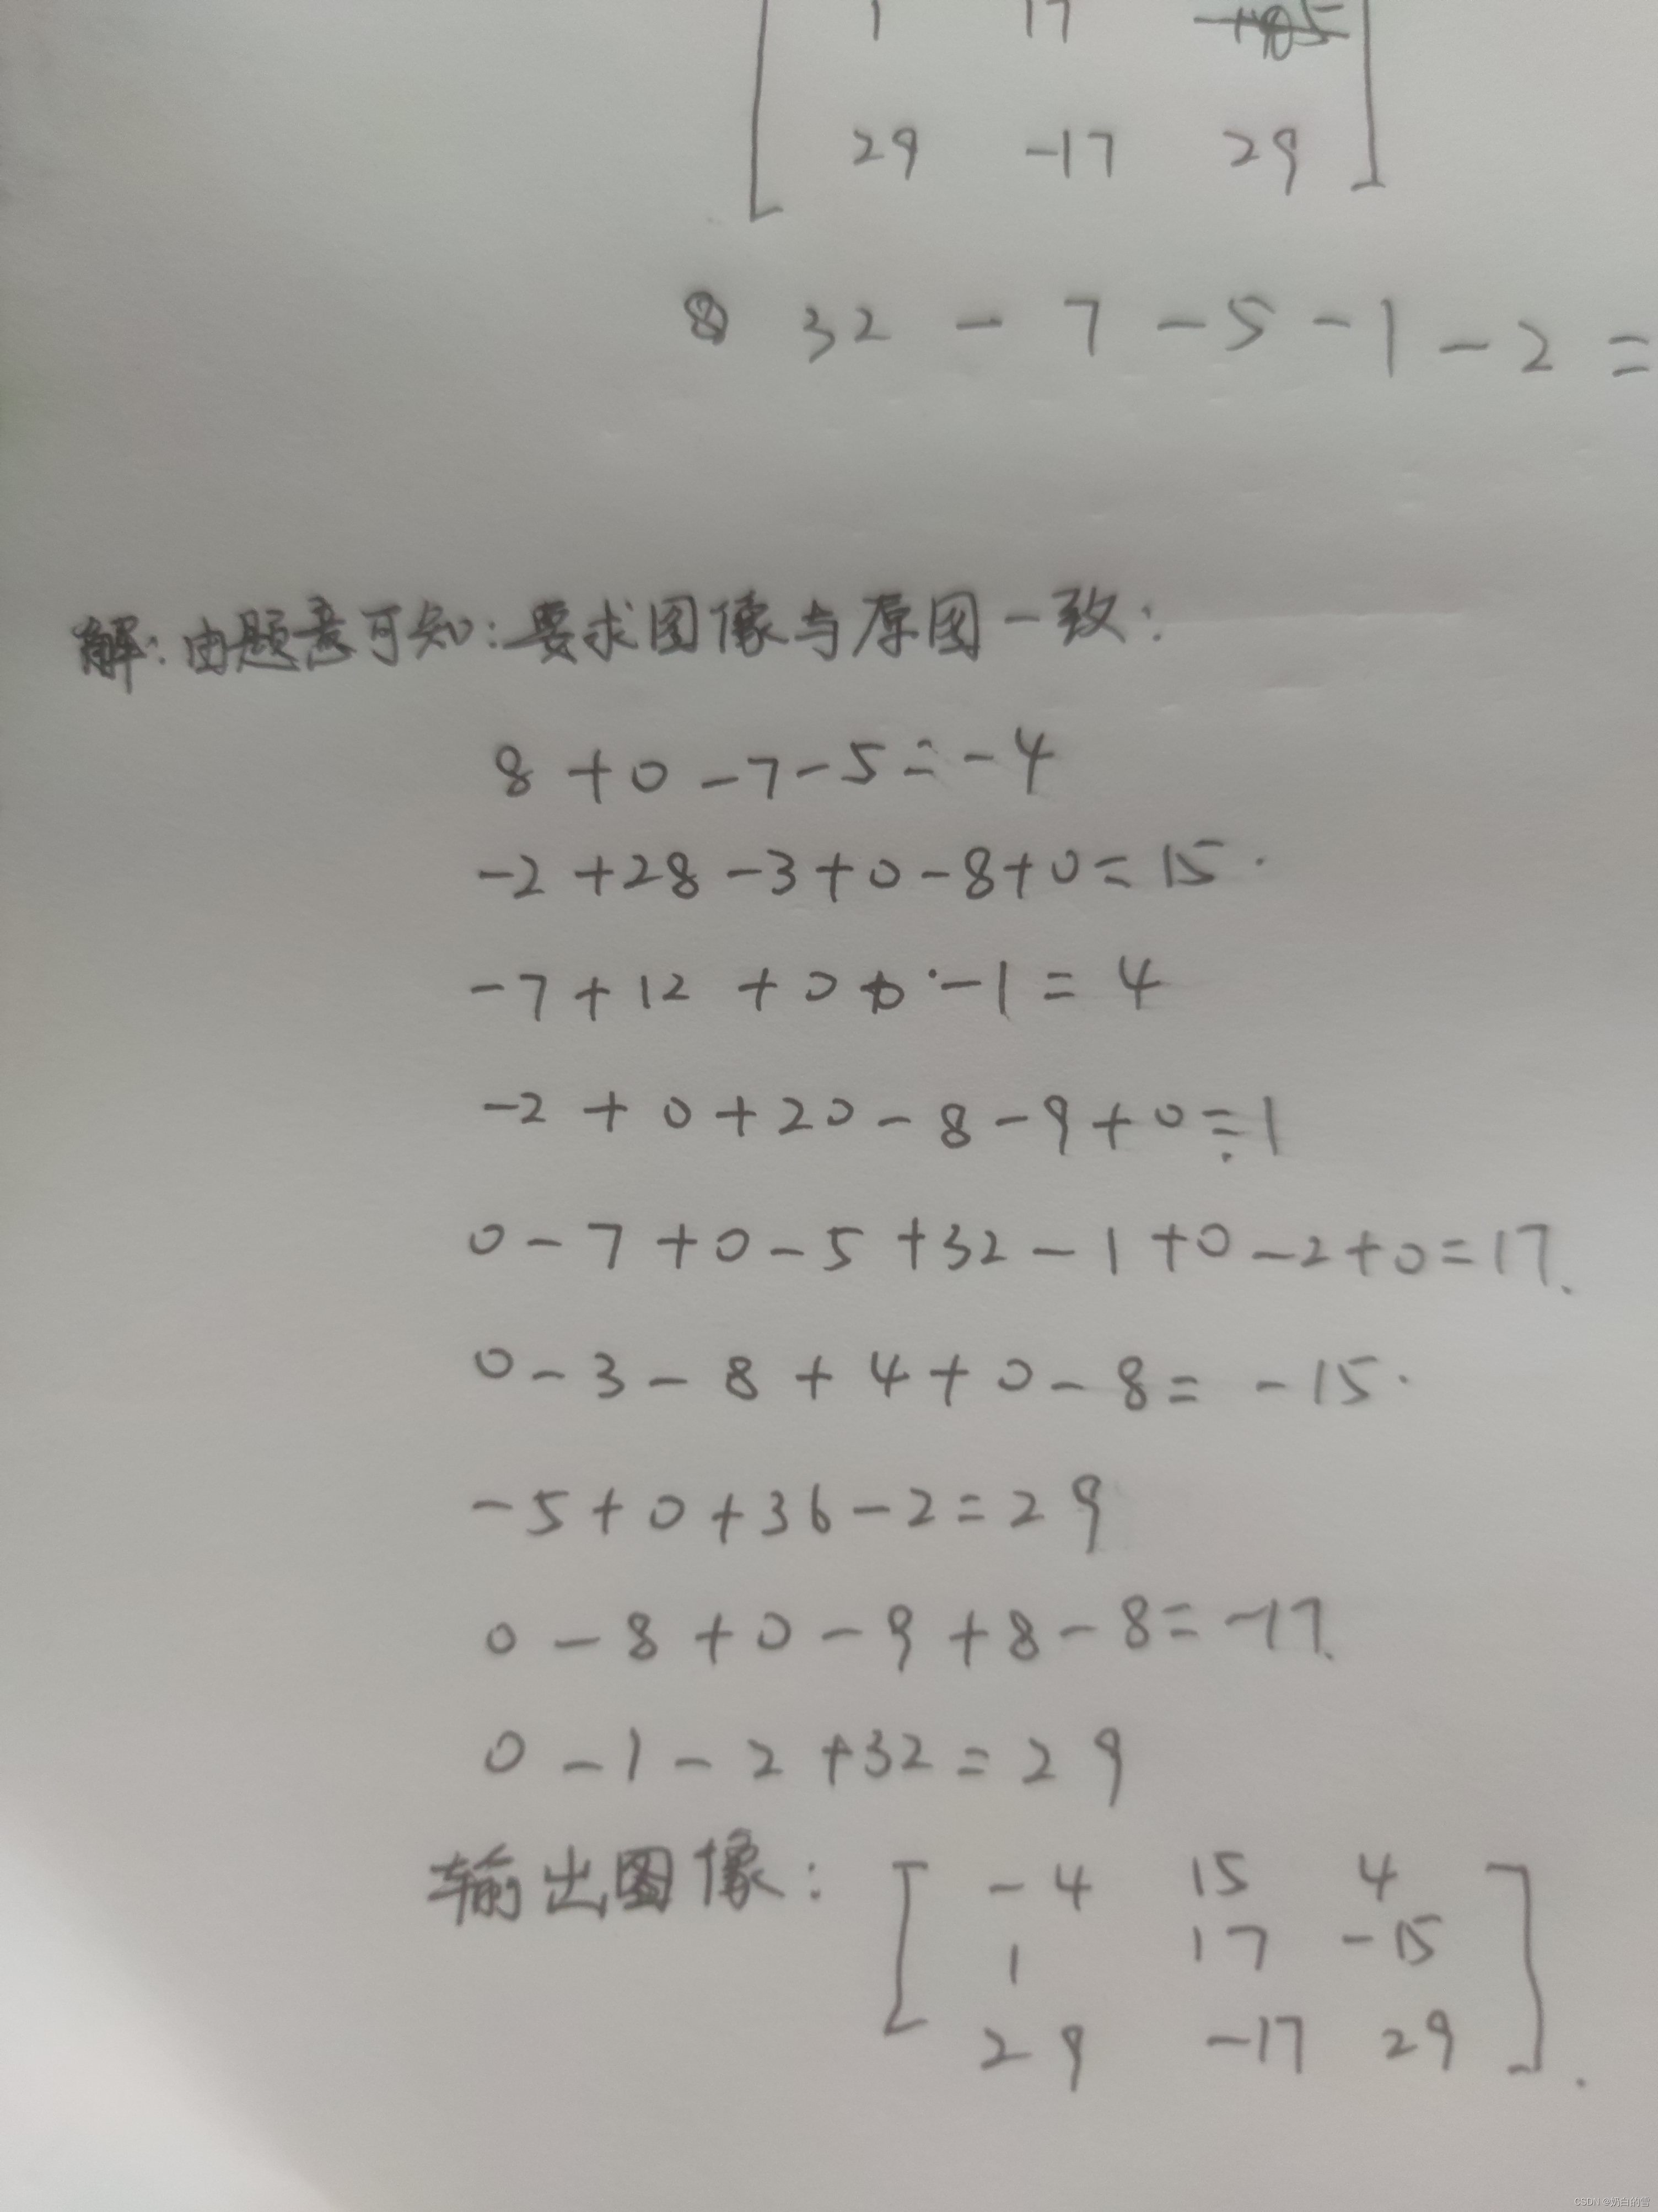 1 17
29 -17 29
32 - 7 - 5 - 1 - 2 =
解:由题意可知:要求图像与原图一致:
8 + 0 - 7 - 5 = - 4
-2 + 28 - 3 + 0 - 8 + 0 = 15.
-7 + 12 + 0 + 0 - 1 = 4
-2 + 0 + 20 - 8 - 9 + 0 = 1
0 - 7 + 0 - 5 + 32 - 1 + 0 - 2 + 0 = 17.
0 - 3 - 8 + 4 + 0 - 8 = - 15.
-5 + 0 + 36 - 2 = 29
0 - 8 + 0 - 9 + 8 - 8 = -17.
0 - 1 - 2 + 32 = 29
输出图像: [ -4 15 4
1 17 -15
29 -17 29 ].
CSDN @奶白的雪